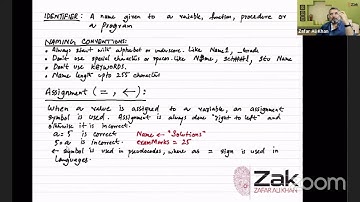 IDENTIFIER: A name given to a variable, function, procedure or
a program
NAMING CONVENTIONS:
• Always start with alphabet or underscore. Like Name1, _Grade
• Don't use special characters or spaces. Like
• Don't use KEYWORDS.
• Name length upto 255 characters
Assignment (=, ←):
When a value is assigned to a variable, an assignment
symbol is used. Assignment is always done "right to left" and
otherwise it is incorrect.
a = 5 is correct Name ← "Solutions"
5 = a is incorrect. examMarks = 25
← symbol is used in pseudocodes, where as = sign is used in
languages.
Zafar Ali Khan
Zak
ZAFAR ALI KHAN
zoom